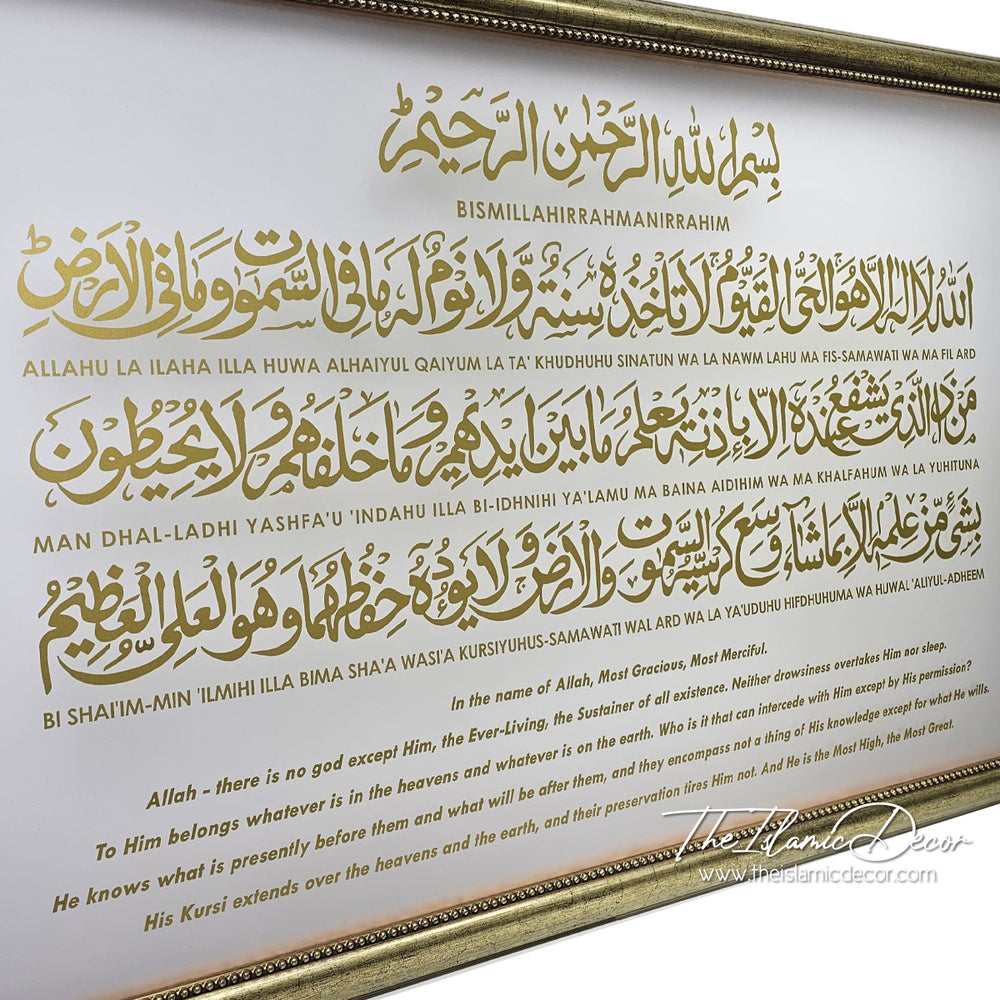 بِسْمِ اللهِ الرَّحْمٰنِ الرَّحِيْمِ
BISMILLAHIRRAHMANIRRAHIM
اَللهُ لَا اِلٰهَ اِلَّا هُوَ الْحَيُّ الْقَيُّوْمُ لَا تَاْخُذُهٗ سِنَةٌ وَّلَا نَوْمٌ لَهٗ مَا فِي السَّمٰوٰتِ وَمَا فِي الْاَرْضِ
ALLAHU LA ILAHA ILLA HUWA ALHAIYUL QAIYUM LA TA' KHUDHUHU SINATUN WA LA NAWM LAHU MA FIS-SAMAWATI WA MA FIL ARD
مَنْ ذَا الَّذِيْ يَشْفَعُ عِنْدَهٗ اِلَّا بِاِذْنِهٖ يَعْلَمُ مَا بَيْنَ اَيْدِيْهِمْ وَمَا خَلْفَهُمْ وَلَا يُحِيْطُوْنَ
MAN DHAL-LADHI YASHFA'U 'INDAHU ILLA BI-IDHNIHI YA'LAMU MA BAINA AIDIHIM WA MA KHALFAHUM WA LA YUHITUNA
بِشَيْءٍ مِّنْ عِلْمِهٖ اِلَّا بِمَا شَآءَ وَسِعَ كُرْسِيُّهُ السَّمٰوٰتِ وَالْاَرْضَ وَلَا يَـُٔوْدُهٗ حِفْظُهُمَا وَهُوَ الْعَلِيُّ الْعَظِيْمُ
BI SHAI'IM-MIN 'ILMIHI ILLA BIMA SHA'A WASI'A KURSIYUHUS-SAMAWATI WAL ARD WA LA YA'UDUHU HIFDHUHUMA WA HUWAL 'ALIYUL-ADHEEM
In the name of Allah, Most Gracious, Most Merciful.
Allah - there is no god except Him, the Ever-Living, the Sustainer of all existence. Neither drowsiness overtakes Him nor sleep.
To Him belongs whatever is in the heavens and whatever is on the earth. Who is it that can intercede with Him except by His permission?
He knows what is presently before them and what will be after them, and they encompass not a thing of His knowledge except for what He wills.
His Kursi extends over the heavens and the earth, and their preservation tires Him not. And He is the Most High, the Most Great.
TheIslamicDecor
www.theislamicdecor.com